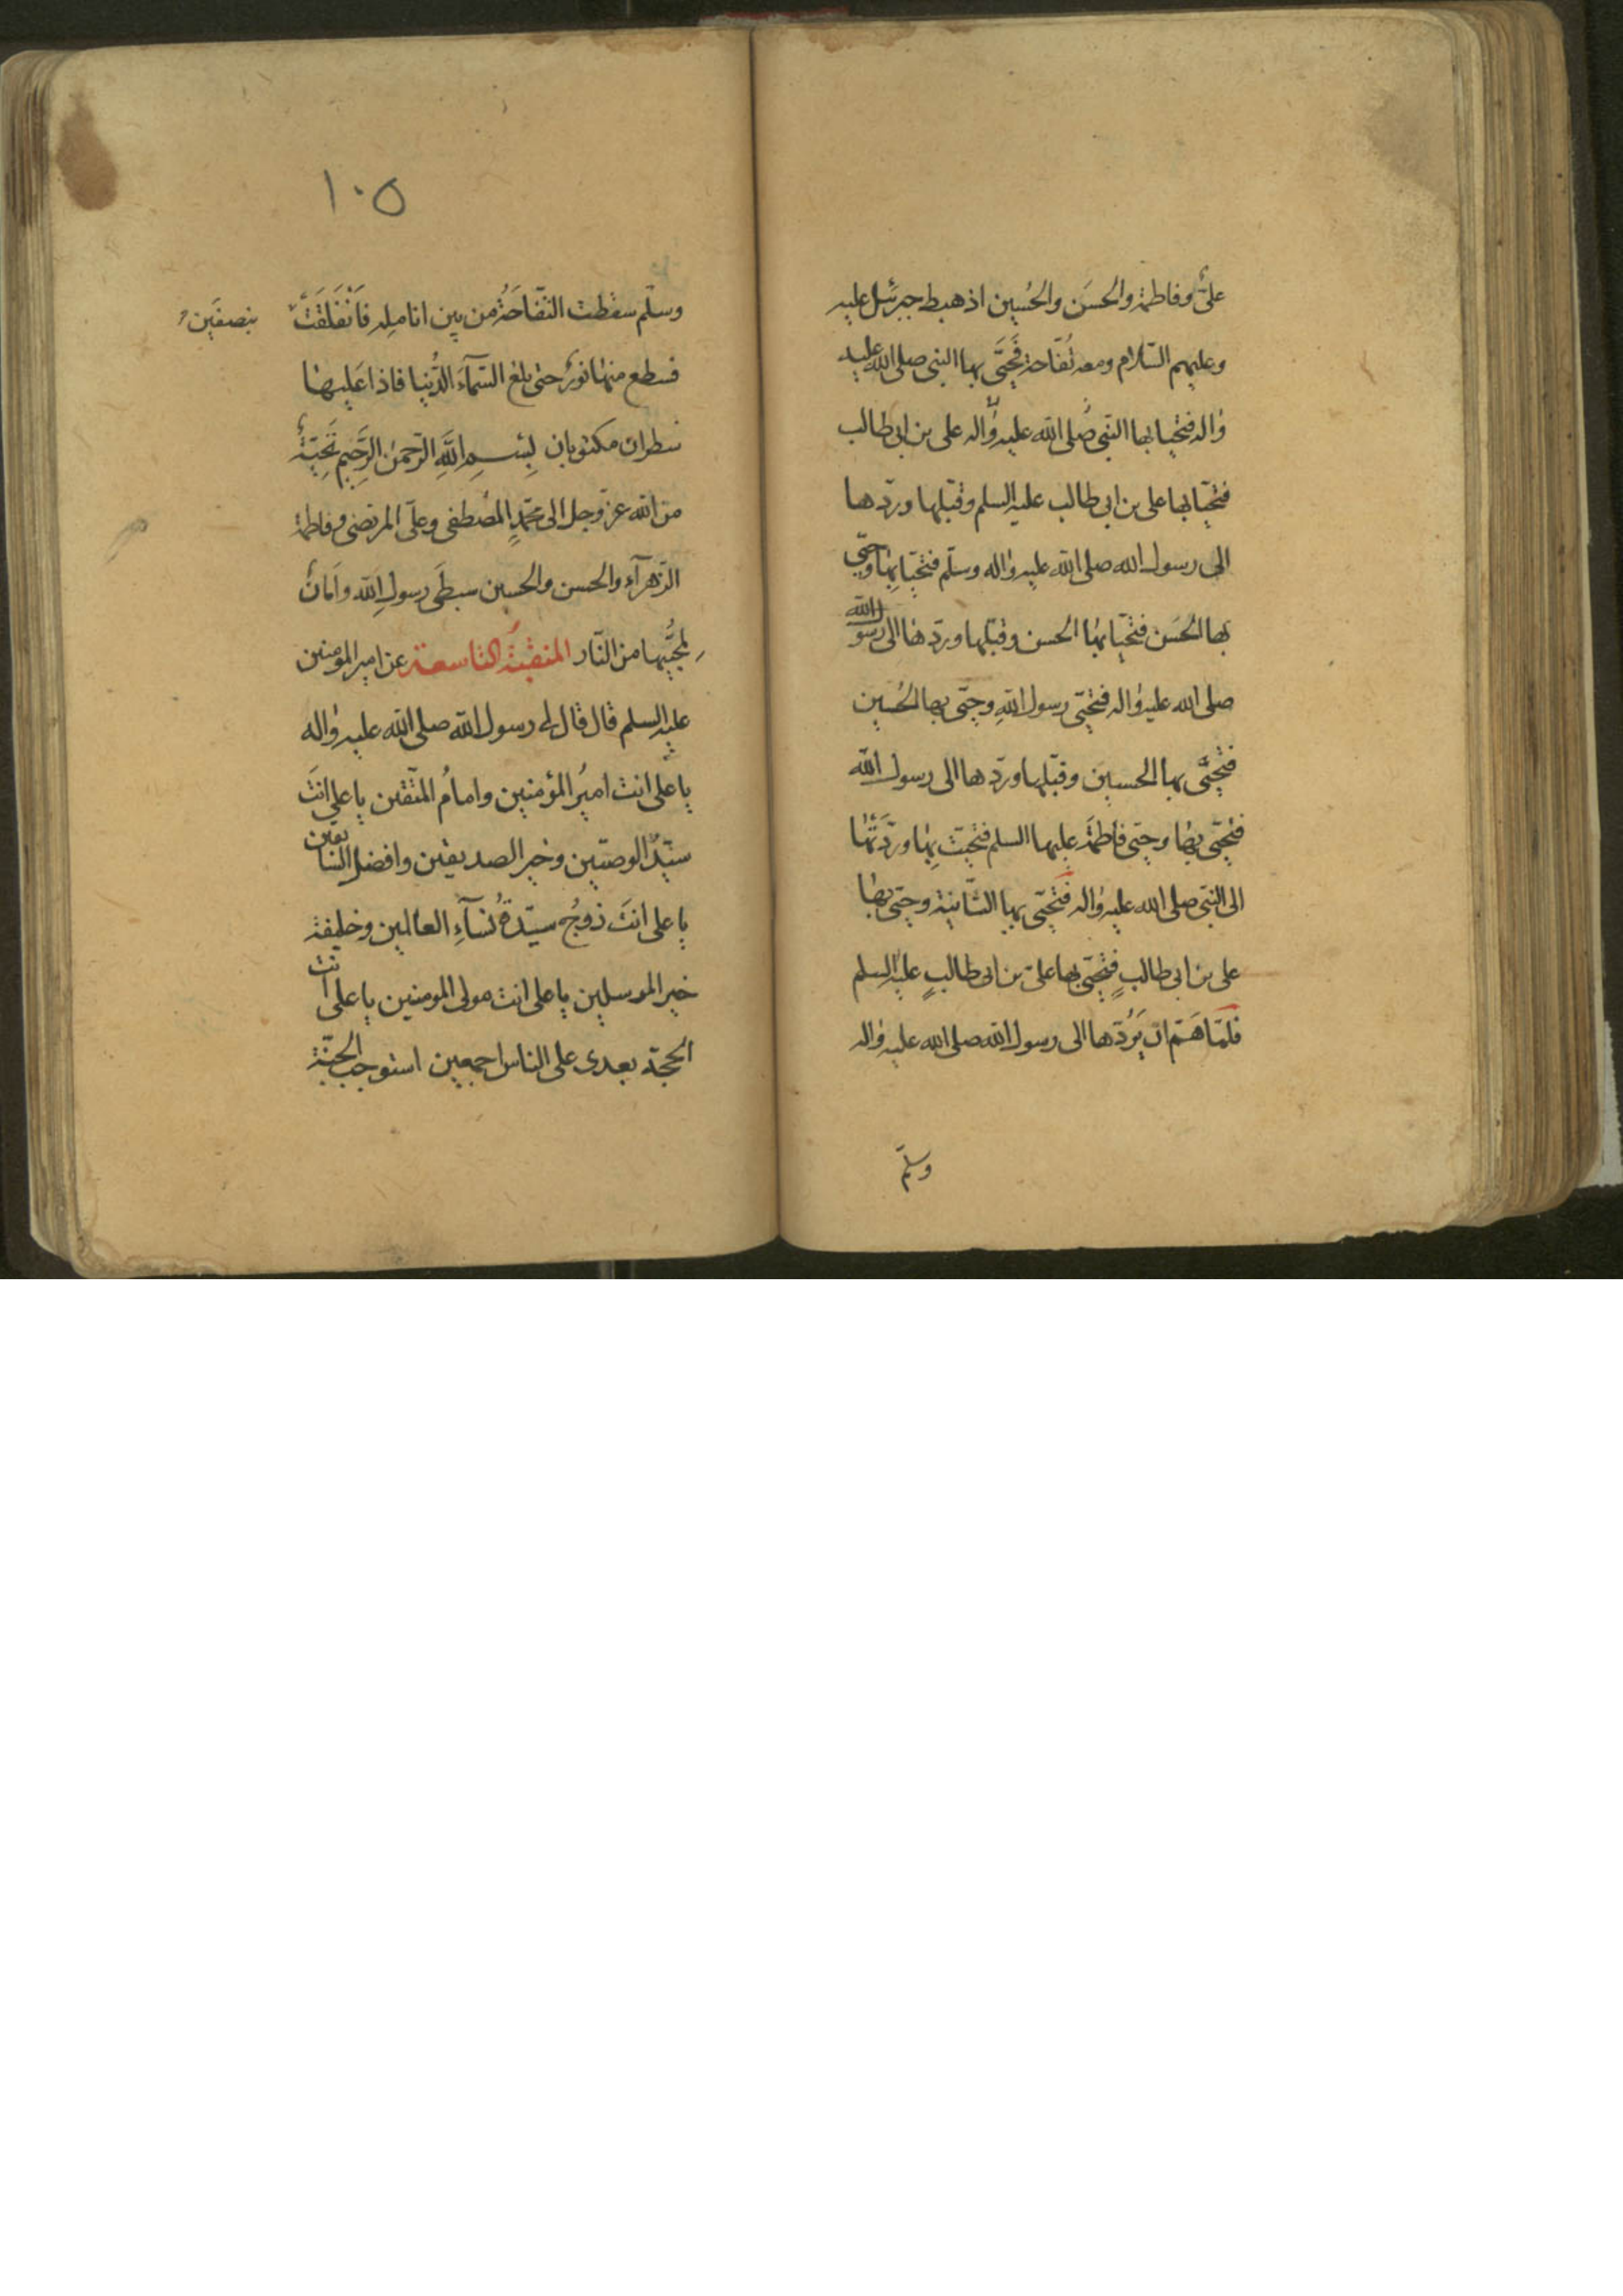 علیّ وفاطمة والحسَن والحُسین اذ هبط جبرئیل علیه
وعلیهم السّلام ومعه تُفّاحة فَحَیَّی بها النبی صلی الله علیه
واله فتحیا بها النبی صلی الله علیه واله علی بن ابی طالب
فتحیّا بها علی بن ابی طالب علیه السلم وقبّلها وردّها
الی رسول الله صلی الله علیه واله وسلّم فتحیّا بها وحیّی
بها الحَسَن فتحیّا بها الحسن وقبّلها وردّها الی رسول الله
صلی الله علیه واله فتحیّی رسول اللهِ وحیّی بها الحُسین
فتحیَّی بها الحسین وقبّلها وردّها الی رسول الله
فتحیّی بها وحیّی فاطمةَ علیها السلم فتحیّت بِها وردَّتها
الی النبّی صلی الله علیه واله فتَحیّی بها الثّانیة وحیّی بها
علی بن ابی طالبٍ فتحیّی بها علیّ بن ابی طالبٍ علیه السلم
فلمّا هَمّ ان یَرُدّها الی رسول الله صلی الله علیه واله
وسلّم
١٠٥
وسلّم سقطت التفّاحَةُ من بین انامِله فَانْفَلَقَتْ بنصفَین
فسطع منها نورٌ حتی بلغ السّمآءَ الدُّنیا فاذا عَلیها
سطران مکتوبان بِسْمِ اللَّهِ الرَّحمن الرَّحیم تَحِیّةٌ
من الله عزّ وجل الی محمّدٍ المُصطفی وعلیّ المرتضی وفاطمة
الزّهرآءِ والحسن والحسین سبطَی رسولِ الله واَمانٌ
لِمُحِبّیها من النّار المنقبةُ التاسعة عن امیر المومنین
علیه السلم قال قال لی رسول الله صلی الله علیه واله
یا علی انت امیرُ المؤمنین وامامُ المتّقین یا علی انتَ
سیّدُ الوصیّین وخیر الصدیقین وافضل السابقین
یا علی انتَ زوجُ سیّدةُ نسآءِ العالمین وخلیفة
خیر المرسلین یا علی انت مولی المومنین یا علی انت
الحجّة بعدی علی الناس اجمعین استوجب الجنّة